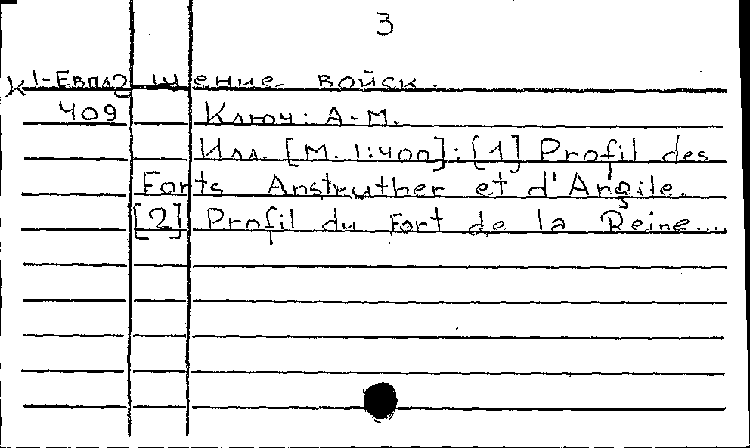 3
К 1-Евпл2 щение войск.
409 Ключ: А-М.
Илл. [М. 1:400]: [1] Profil des
Forts Anstruther et d'Argile.
[2] Profil du Fort de la Reine...